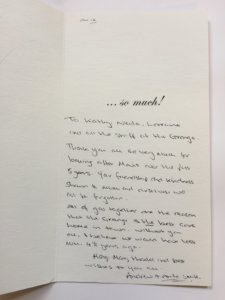 ... so much!
To Kathy, Nicola, Lorraine
and all the staff at the Grange.
Thank you all so very much for
looking after Mum over the past
5 years. Your friendship and kindness
shown to mum and ourselves will
not be forgotten.
All of you together are the reason
that the Grange is the best care
home in town. Without you
all, I believe we would have lost
mum 4½ years ago.
Many, Many thanks and best
wishes to you all.
Andrew